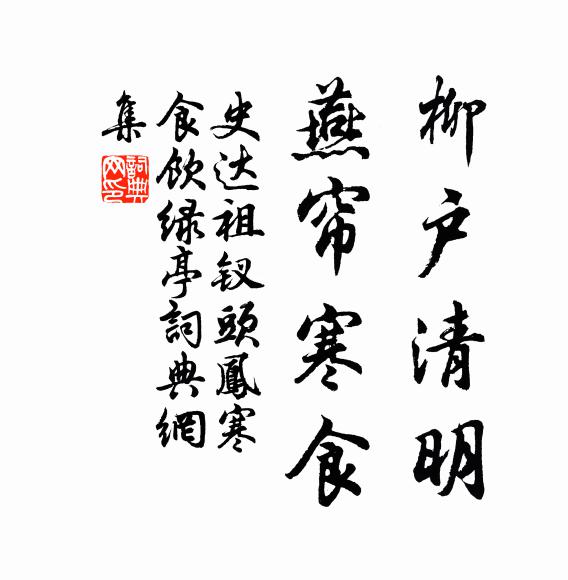 柳户清明
燕帘寒食
史达祖钗頭鳳寒
食饮绿亭詞典網
集
詞典
网印